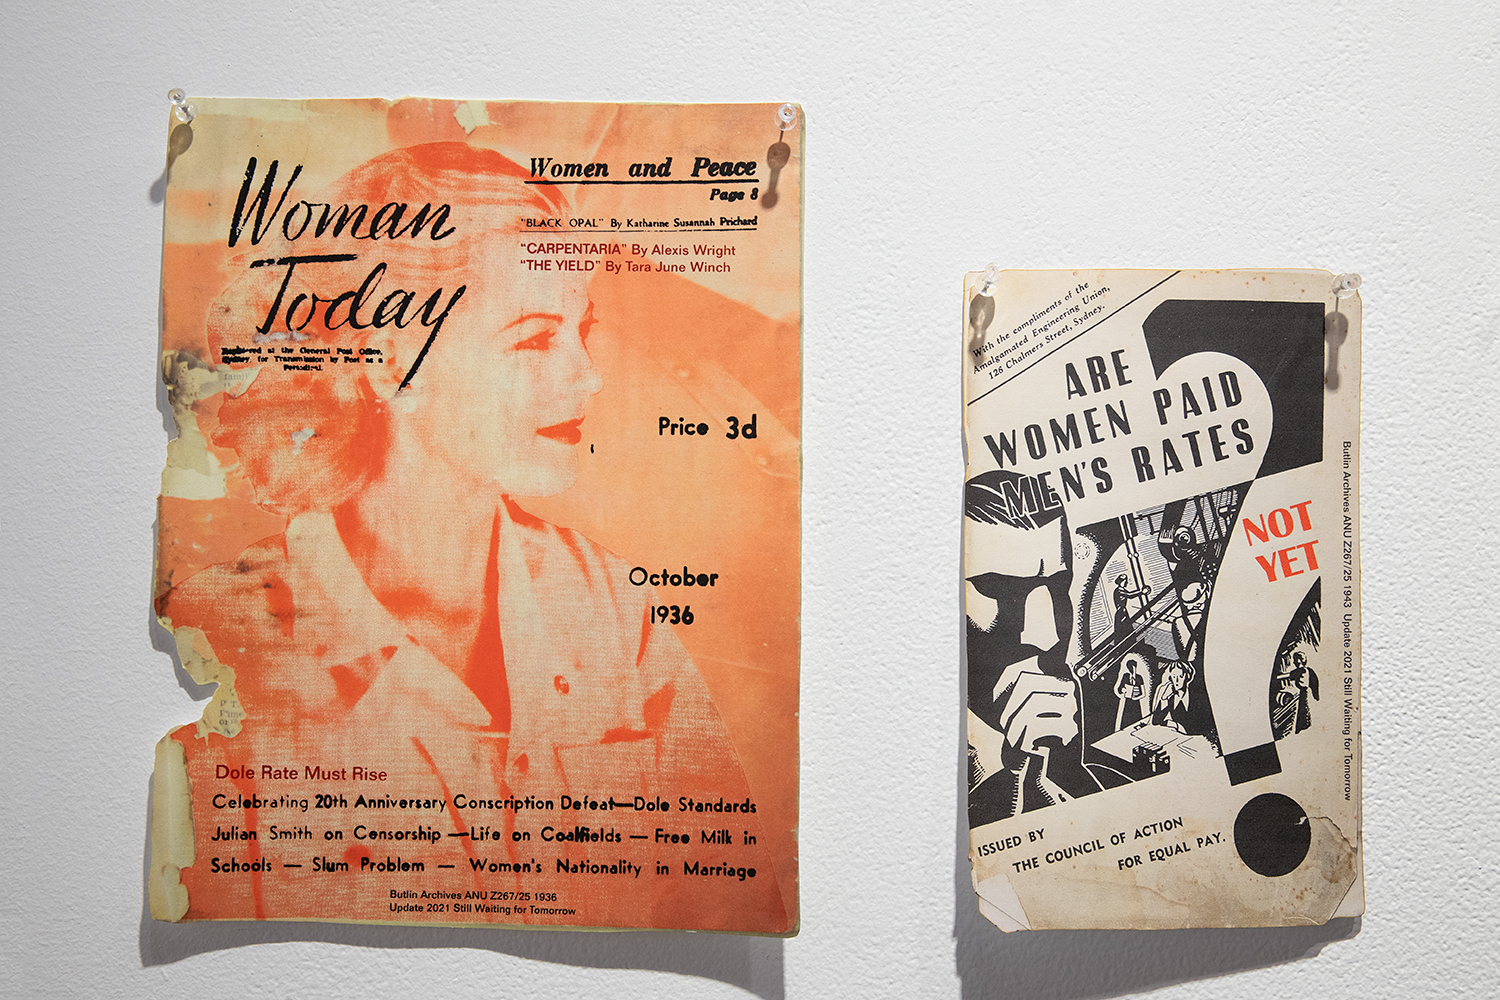 Woman
Today
Registered at the General Post Office,
Sydney, for Transmission by Post as a
Periodical.
Women and Peace
Page 8
"BLACK OPAL" By Katharine Susannah Prichard
"CARPENTARIA" By Alexis Wright
"THE YIELD" By Tara June Winch
Price 3d
October
1936
Dole Rate Must Rise
Celebrating 20th Anniversary Conscription Defeat—Dole Standards
Julian Smith on Censorship — Life on Coalfields — Free Milk in
Schools — Slum Problem — Women's Nationality in Marriage
Butlin Archives ANU Z267/25 1936
Update 2021 Still Waiting for Tomorrow
With the compliments of the
Amalgamated Engineering Union,
126 Chalmers Street, Sydney.
ARE
WOMEN PAID
MEN'S RATES
NOT
YET
ISSUED BY
THE COUNCIL OF ACTION
FOR EQUAL PAY.
Butlin Archives ANU Z267/25 1943 Update 2021 Still Waiting for Tomorrow